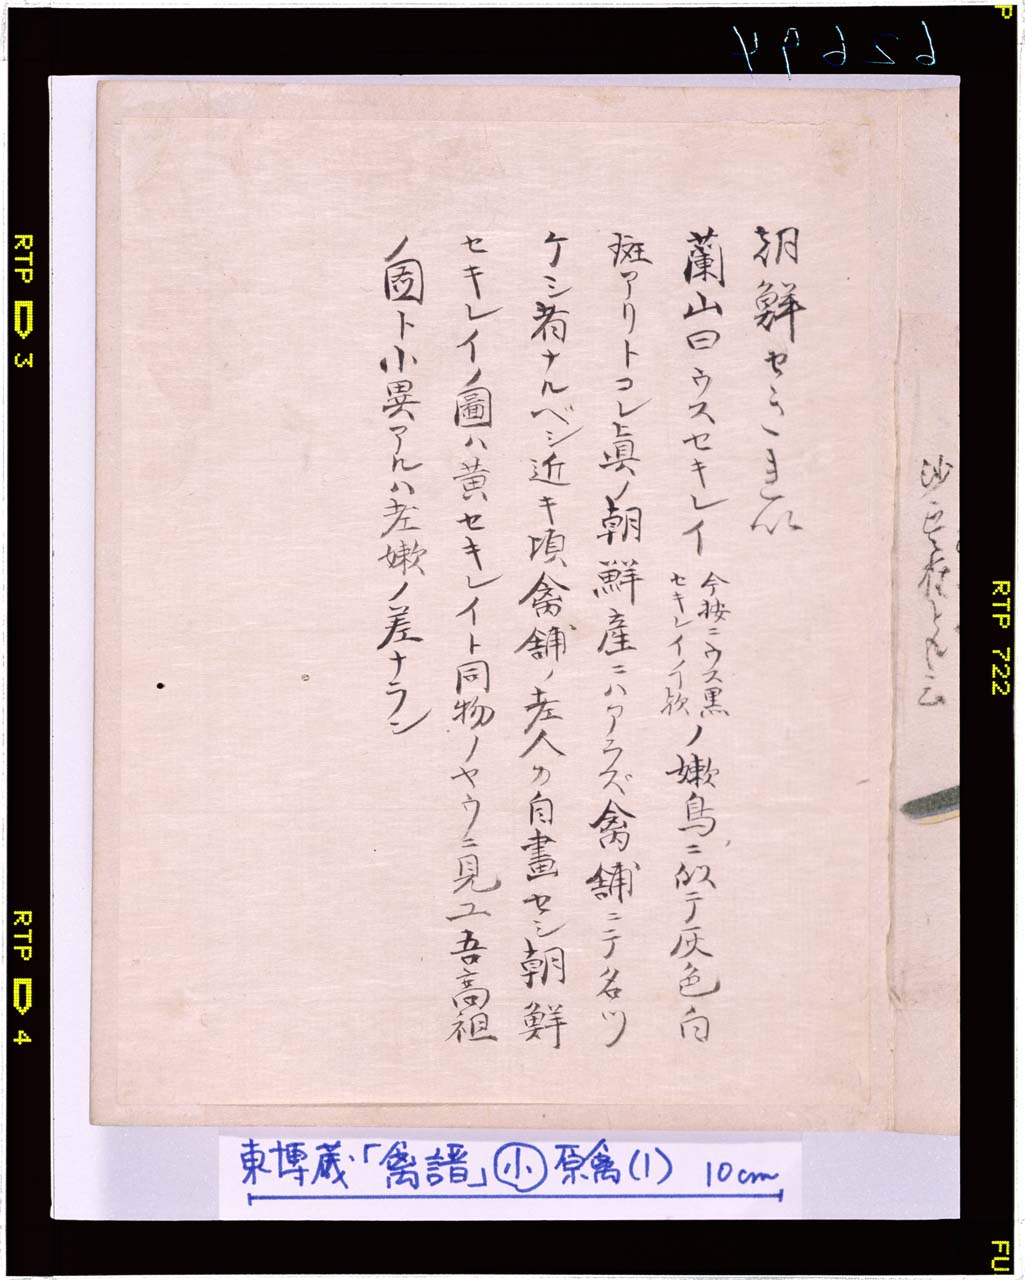 62694
朝鮮せきれい
蘭山曰ウスセキレイ今按ニウス黒セキレイノイ欤ノ嫩鳥ニ似テ灰色白
斑アリトコレ眞ノ朝鮮産ニハアラズ禽舗ニテ名ツ
ケシ者ナルベシ近キ頃禽舗ノ老人カ自畫セシ朝鮮
セキレイノ圖ハ黄セキレイト同物ノヤウニ見ユ吾高祖
ノ圖ト小異アルハ老嫩ノ差ナラン
東博蔵「禽譜」小 原禽(1) 10cm
RTP 3
RTP 4
RTP 722
P
FU